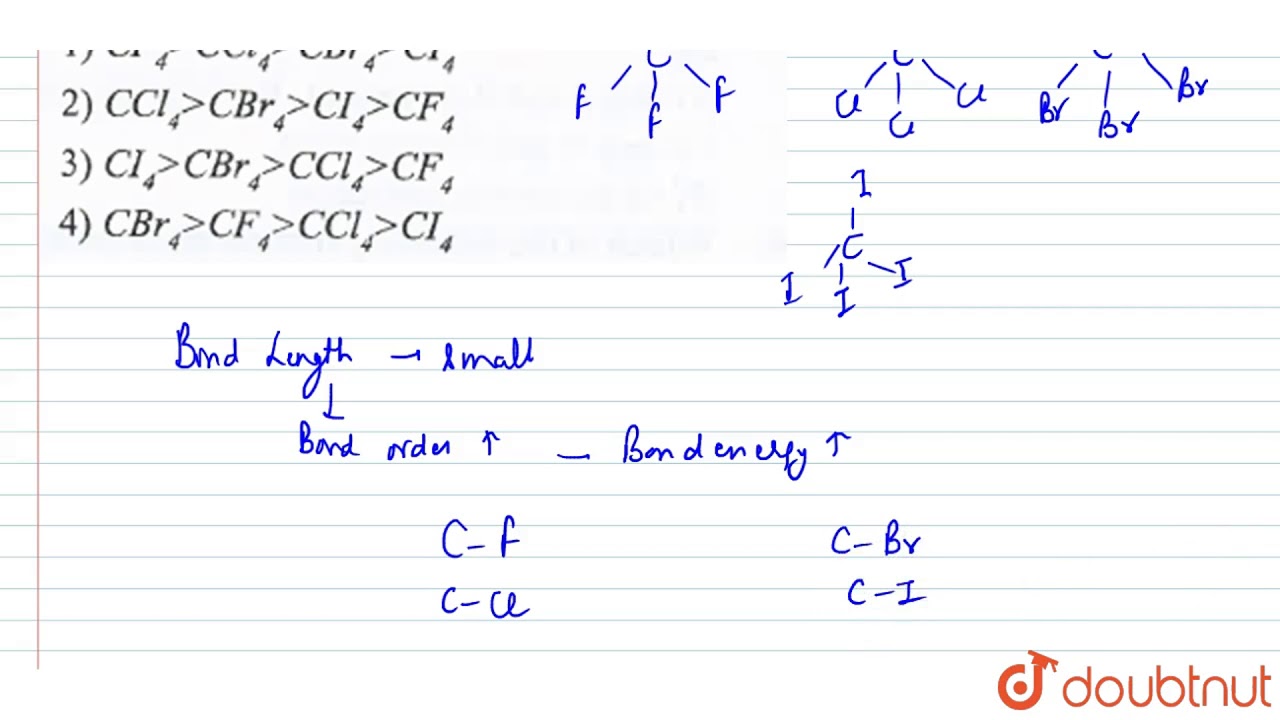 1) CF4>CCl4>CBr4>CI4
2) CCl4>CBr4>CI4>CF4
3) CI4>CBr4>CCl4>CF4
4) CBr4>CF4>CCl4>CI4
C
F F F
C
Cl Cl Cl
C
Br Br Br
I
C
I I I
Bond Length → small
↓
Bond order ↑ — Bond energy ↑
C-F
C-Cl
C-Br
C-I
doubtnut